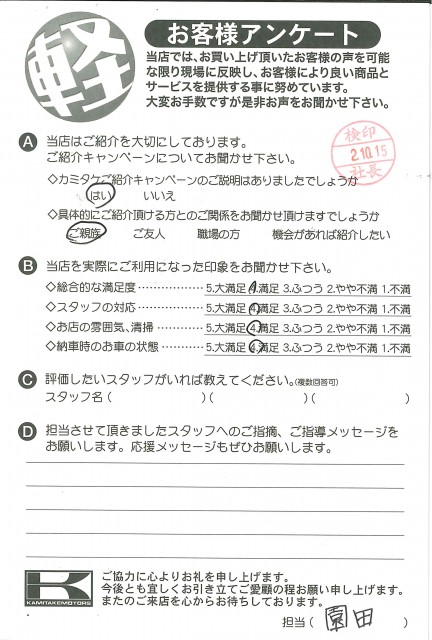 軽
お客様アンケート
当店では、お買い上げ頂いたお客様の声を可能
な限り現場に反映し、お客様により良い商品と
サービスを提供する事に努めています。
大変お手数ですが是非お声をお聞かせ下さい。
A 当店はご紹介を大切にしております。
ご紹介キャンペーンについてお聞かせ下さい。
検印
2.10.15
社長
◇カミタケご紹介キャンペーンのご説明はありましたでしょうか
はい いいえ
◇具体的にご紹介頂ける方とのご関係をお聞かせ頂けますでしょうか
ご親族 ご友人 職場の方 機会があれば紹介したい
B 当店を実際にご利用になった印象をお聞かせ下さい。
◇総合的な満足度 ……………… 5.大満足 4.満足 3.ふつう 2.やや不満 1.不満
◇スタッフの対応 ……………… 5.大満足 4.満足 3.ふつう 2.やや不満 1.不満
◇お店の雰囲気、清掃 ………… 5.大満足 4.満足 3.ふつう 2.やや不満 1.不満
◇納車時のお車の状態 ………… 5.大満足 4.満足 3.ふつう 2.やや不満 1.不満
C 評価したいスタッフがいれば教えてください。(複数回答可)
スタッフ名 ( )( )( )
D 担当させて頂きましたスタッフへのご指摘、ご指導メッセージを
お願いします。応援メッセージもぜひお願いします。
K
KAMITAKEMOTORS
ご協力に心よりお礼を申し上げます。
今後とも宜しくお引き立てご愛顧の程お願い申し上げます。
またのご来店を心からお待ちしております。
担当 ( 園田 )